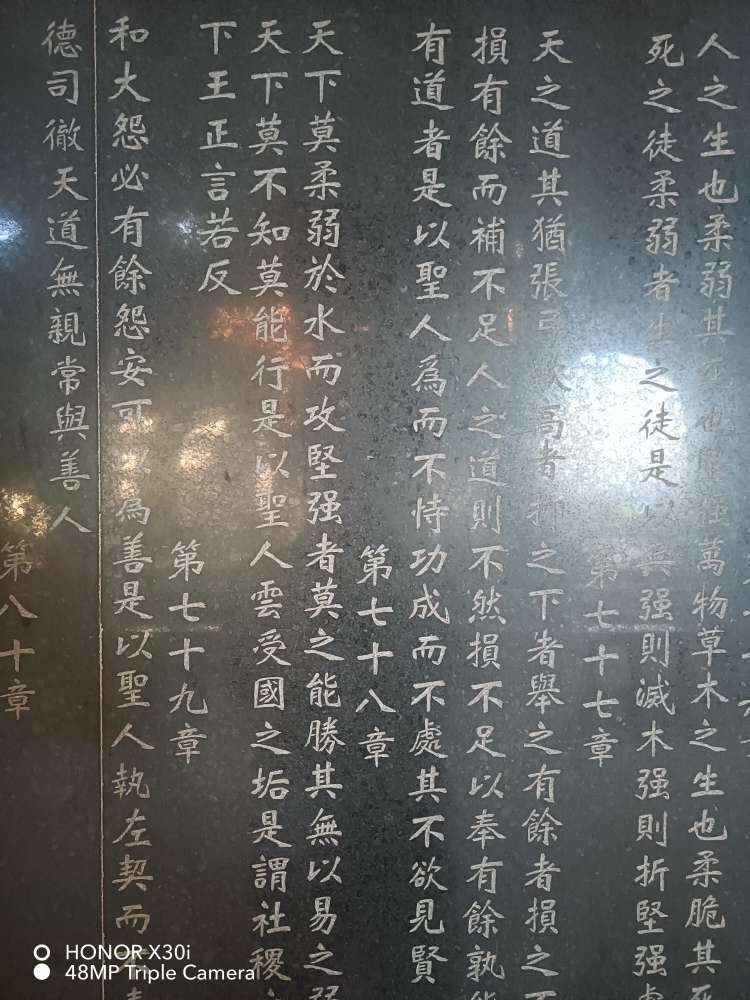 人之生也柔弱其死也堅強萬物草木之生也柔脆其死
死之徒柔弱者生之徒是以兵强則滅木强則折堅强處
第七十七章
天之道其猶張弓歟高者抑之下者舉之有餘者損之不
損有餘而補不足人之道則不然損不足以奉有餘孰能
有道者是以聖人爲而不恃功成而不處其不欲見賢
第七十八章
天下莫柔弱於水而攻堅强者莫之能勝其無以易之弱
天下莫不知莫能行是以聖人雲受國之垢是謂社稷
下王正言若反
第七十九章
和大怨必有餘怨安可以爲善是以聖人執左契而不
德司徹天道無親常與善人
第八十章
HONOR X30i
48MP Triple Camera